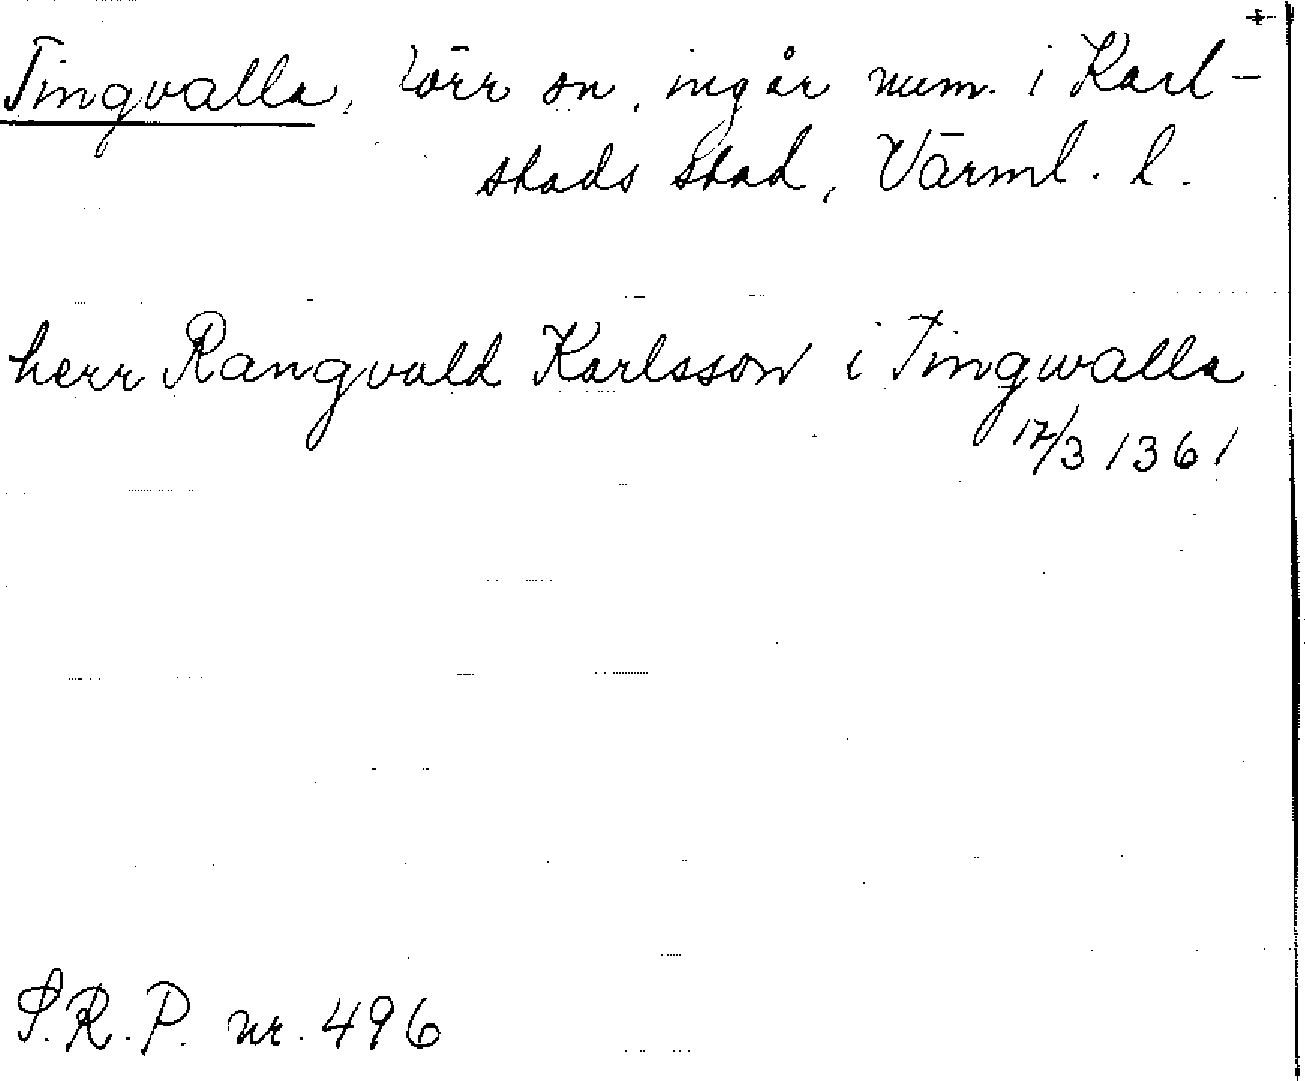 Tingvalla, förr sn, ingår num. i Karl-
stads stad, Värml. l.
herr Rangvald Karlsson i Tingwalla
17/3 1361
S.R.P. nr. 496